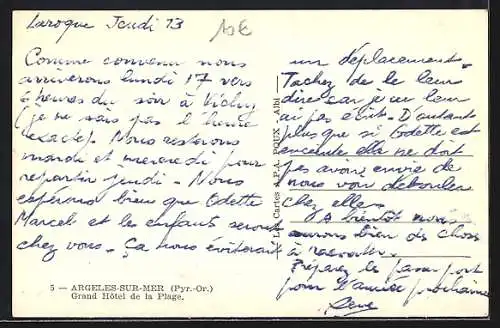 Laroque Jeudi 13
Comme convenu nous
arriverons lundi 17 vers
6 heures du soir à Vichy
(je ne sais pas l'heure
exacte). Nous resterons
mardi et mercredi pour
repartir jeudi - Nous
espérons bien que Odette
Marcel et les enfants seront
chez vous. Ça nous éviterait
un déplacement.
Tachez de le leur
dire car je ne leur
ai pas écrit. D'autant
plus que si Odette est
enceinte elle ne doit
pas avoir envie de
nous voir débouler
chez elle.
A bientôt nous
aurons bien des choses
à raconter.
Préparez les passeport
pour l'année prochaine
Les Cartes A.P.A. POUX - Albi
5 — ARGELES-SUR-MER (Pyr.-Or.)
Grand Hôtel de la Plage.